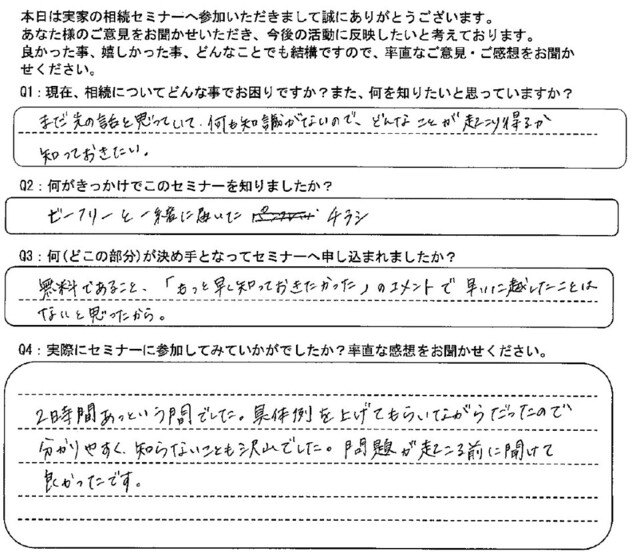 本日は実家の相続セミナーへ参加いただきまして誠にありがとうございます。
あなた様のご意見をお聞かせいただき、今後の活動に反映したいと考えております。
良かった事、嬉しかった事、どんなことでも結構ですので、率直なご意見・ご感想をお聞か
せください。
Q1：現在、相続についてどんな事でお困りですか？また、何を知りたいと思っていますか？
まだ先の話と思っていて、何も知識がないので、どんなことが起こり得るか
知っておきたい。
Q2：何がきっかけでこのセミナーを知りましたか？
ビーフリーと一緒に届いた チラシ
Q3：何(どこの部分)が決め手となってセミナーへ申し込まれましたか？
無料であること、「もっと早く知っておきたかった」のコメントで早いに越したことは
ないと思ったから。
Q4：実際にセミナーに参加してみていかがでしたか？率直な感想をお聞かせください。
2時間あっという間でした。具体例を上げてもらいながらだったので
分かりやすく、知らないことも沢山でした。問題が起こる前に聞けて
良かったです。